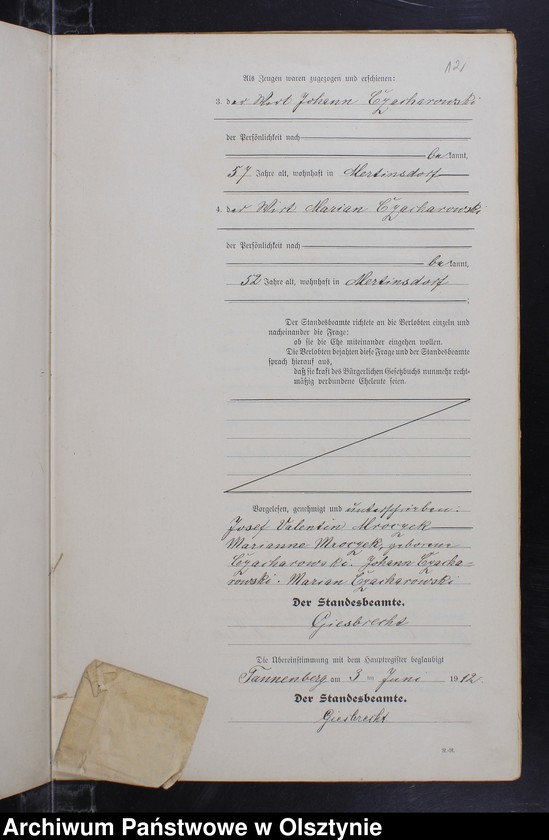 121
Als Zeugen waren zugezogen und erschienen:
3. der Wirt Johann Czacharowski
der Persönlichkeit nach
bekannt,
57 Jahre alt, wohnhaft in Mertinsdorf
4. der Wirt Marian Czacharowski
der Persönlichkeit nach
bekannt,
52 Jahre alt, wohnhaft in Mertinsdorf
;
Der Standesbeamte richtete an die Verlobten einzeln und
nacheinander die Frage:
ob sie die Ehe miteinander eingehen wollen.
Die Verlobten bejahten diese Frage und der Standesbeamte
sprach hierauf aus,
daß sie kraft des Bürgerlichen Gesetzbuchs nunmehr recht-
mäßig verbundene Eheleute seien.
Vorgelesen, genehmigt und unterschrieben:
Josef Valentin Mroczek
Marianne Mroczek, geborene
Czacharowski. Johann Czacha-
rowski. Marian Czacharowski
Der Standesbeamte.
Giesbrecht
Die Übereinstimmung mit dem Hauptregister beglaubigt
Tannenberg am 3 ten Juni 1912.
Der Standesbeamte.
Giesbrecht
Archiwum Państwowe w Olsztynie